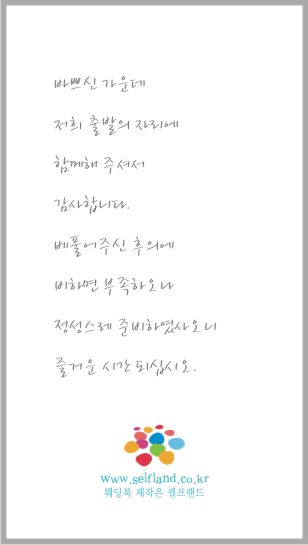 바쁘신 가운데
저희 출발의 자리에
함께해 주셔서
감사합니다.
베풀어주신 후의에
비하면 부족하오나
정성스레 준비하였사오니
즐거운 시간 되십시오.
www.selfland.co.kr
웨딩북 제작은 셀프랜드